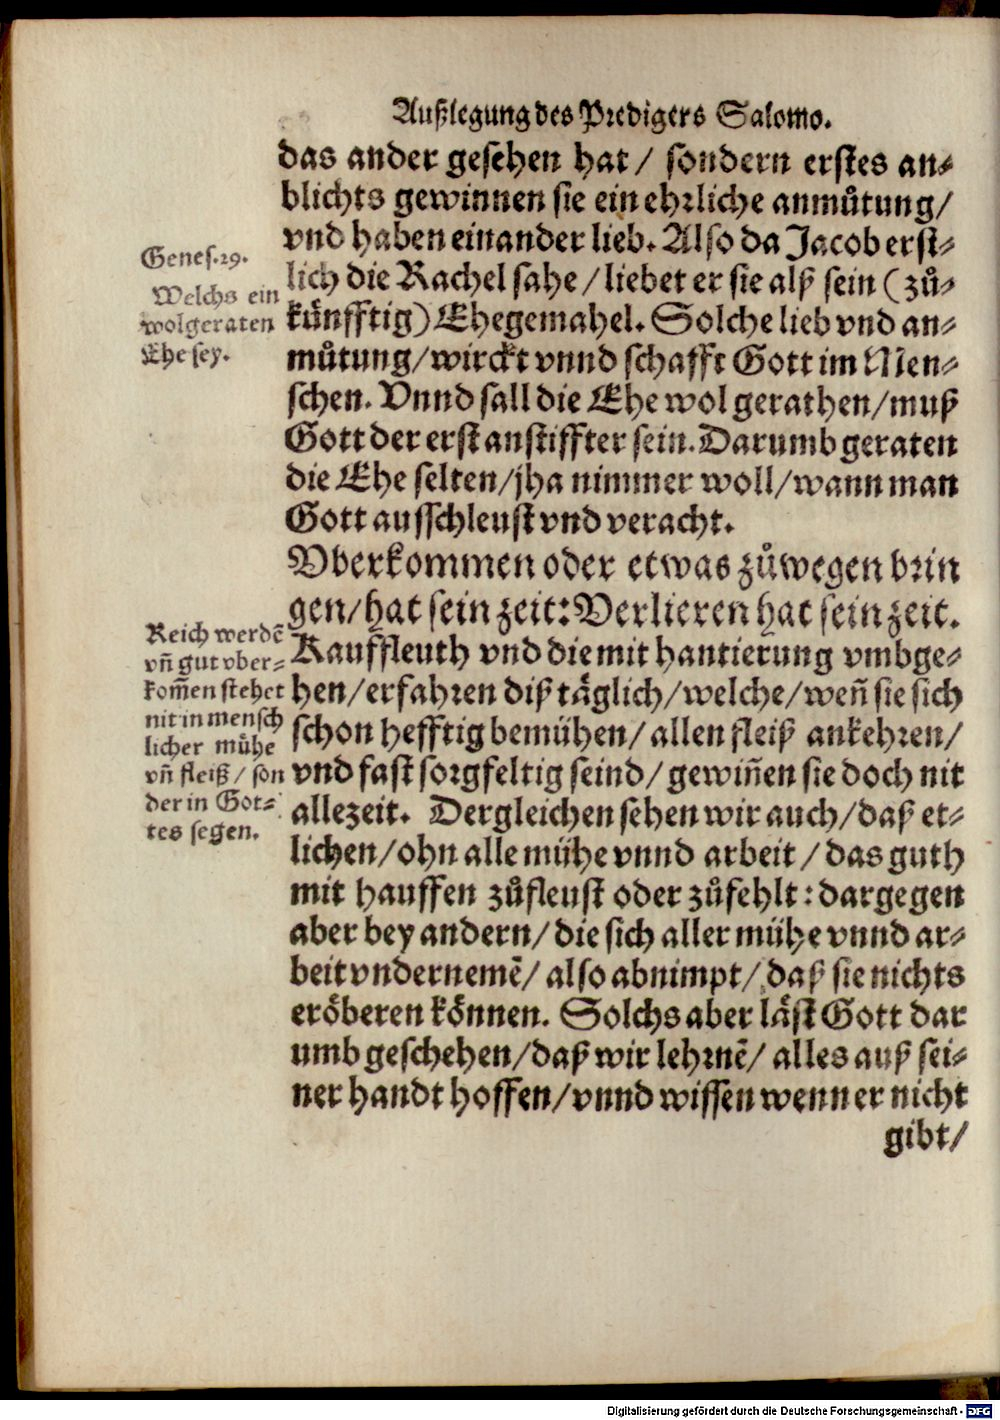 Außlegung des Predigers Salomo.
das ander gesehen hat / sondern erstes an-
blichts gewinnen sie ein ehrliche anmůtung/
vnd haben einander lieb. Also da Jacob erst-
Genes. 29.
lich die Rachel sahe / liebet er sie alß sein (zů-
Welchs ein
wolgeraten
Ehe sey.
künfftig) Ehegemahel. Solche lieb vnd an-
můtung/wirckt vnnd schafft Gott im Men-
schen. Vnnd sall die Ehe wol gerathen/muß
Gott der erst anstiffter sein. Darumb geraten
die Ehe selten/jha nimmer woll/wann man
Gott ausschleust vnd veracht.
Vberkommen oder etwas zůwegen brin
gen/hat sein zeit: Verlieren hat sein zeit.
Reich werdẽ
vñ gut vber-
kom̃en stehet
nit in mensch
licher mühe
vñ fleiß / son
der in Got-
tes segen.
Kauffleuth vnd die mit hantierung vmbge-
hen/erfahren diß täglich/welche/weñ sie sich
schon hefftig bemühen/allen fleiß ankehren/
vnd fast sorgfeltig seind/gewiñen sie doch nit
allezeit. Dergleichen sehen wir auch/daß et-
lichen/ohn alle mühe vnnd arbeit / das guth
mit hauffen zůfleust oder zůfehlt: dargegen
aber bey andern/die sich aller mühe vnnd ar-
beit vndernemẽ/ also abnimpt/daß sie nichts
eröberen können. Solchs aber läst Gott dar
umb geschehen/daß wir lehrnẽ/ alles auß sei-
ner handt hoffen/vnnd wissen wenn er nicht
gibt/
Digitalisierung gefördert durch die Deutsche Forschungsgemeinschaft - DFG